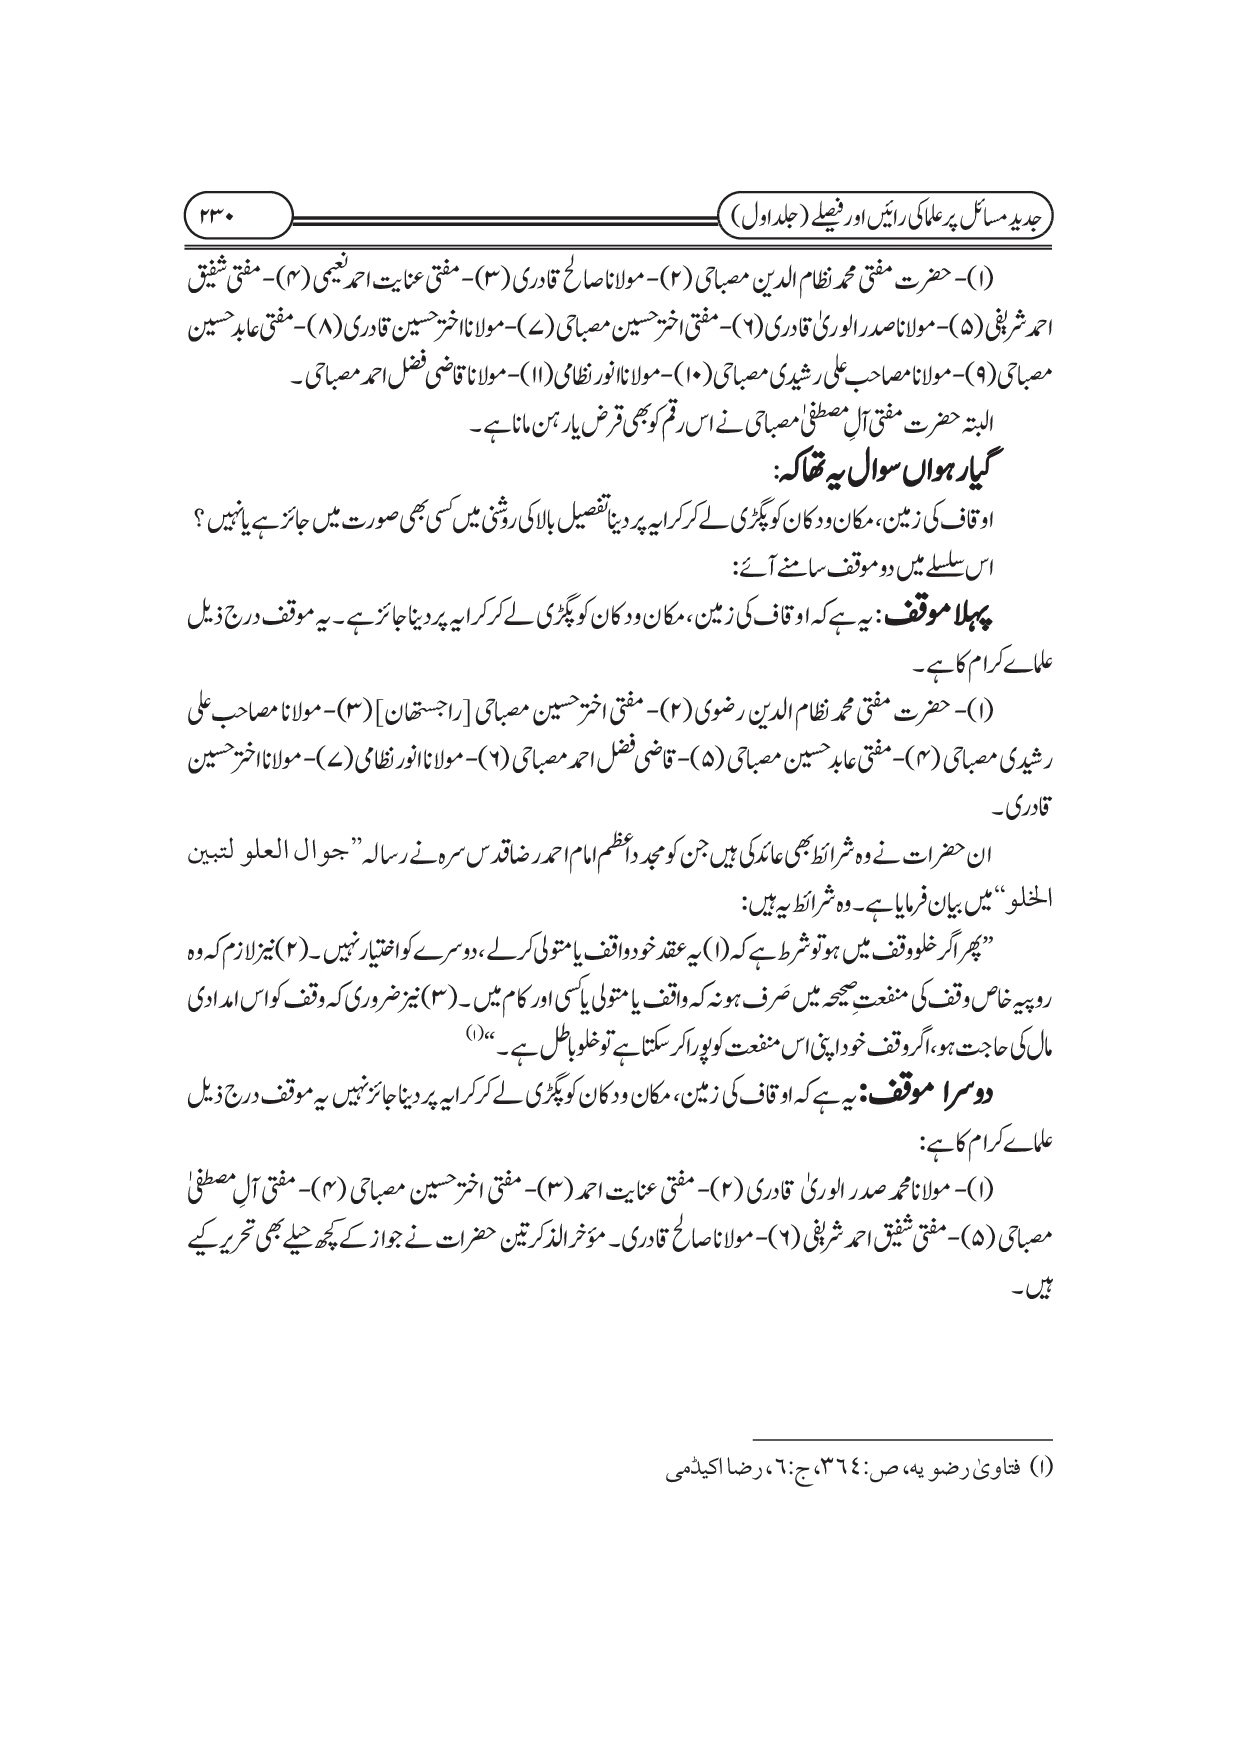 جدید مسائل پر علما کی رائیں اور فیصلے (جلد اول)
۲۳۰
(۱)- حضرت مفتی محمد نظام الدین مصباحی (۲)- مولانا صالح قادری (۳)- مفتی عنایت احمد نعیمی (۴)- مفتی شفیق
احمد شریفی (۵)- مولانا صدر الوریٰ قادری (۶)- مفتی اختر حسین مصباحی (۷)- مولانا اختر حسین قادری (۸)- مفتی عابد حسین
مصباحی (۹)- مولانا مصاحب علی رشیدی مصباحی (۱۰)- مولانا انور نظامی (۱۱)- مولانا قاضی فضل احمد مصباحی۔
البتہ حضرت مفتی آلِ مصطفیٰ مصباحی نے اس رقم کو بھی قرض یا رہن مانا ہے۔
گیارہواں سوال یہ تھا کہ:
اوقاف کی زمین، مکان و دکان کو پگڑی لے کر کرایہ پر دینا تفصیل بالا کی روشنی میں کسی بھی صورت میں جائز ہے یا نہیں؟
اس سلسلے میں دو موقف سامنے آئے:
پہلا موقف: یہ ہے کہ اوقاف کی زمین، مکان و دکان کو پگڑی لے کر کرایہ پر دینا جائز ہے۔ یہ موقف درج ذیل
علماے کرام کا ہے۔
(۱)- حضرت مفتی محمد نظام الدین رضوی (۲)- مفتی اختر حسین مصباحی [راجستھان] (۳)- مولانا مصاحب علی
رشیدی مصباحی (۴)- مفتی عابد حسین مصباحی (۵)- قاضی فضل احمد مصباحی (۶)- مولانا انور نظامی (۷)- مولانا اختر حسین
قادری۔
ان حضرات نے وہ شرائط بھی عائد کی ہیں جن کو مجدد اعظم امام احمد رضا قدس سرہ نے رسالہ ”جوال العلو لتبین
الخلو“ میں بیان فرمایا ہے۔ وہ شرائط یہ ہیں:
”پھر اگر خلو وقف میں ہو تو شرط ہے کہ (۱) یہ عقد خود واقف یا متولی کرلے، دوسرے کو اختیار نہیں۔ (۲) نیز لازم کہ وہ
روپیہ خاص وقف کی منفعتِ صحیحہ میں صَرف ہو نہ کہ واقف یا متولی یا کسی اور کام میں۔ (۳) نیز ضروری کہ وقف کو اس امدادی
مال کی حاجت ہو، اگر وقف خود اپنی اس منفعت کو پورا کر سکتا ہے تو خلو باطل ہے۔“(۱)
دوسرا موقف: یہ ہے کہ اوقاف کی زمین، مکان و دکان کو پگڑی لے کر کرایہ پر دینا جائز نہیں یہ موقف درج ذیل
علماے کرام کا ہے:
(۱)- مولانا محمد صدر الوریٰ قادری (۲)- مفتی عنایت احمد (۳)- مفتی اختر حسین مصباحی (۴)- مفتی آلِ مصطفیٰ
مصباحی (۵)- مفتی شفیق احمد شریفی (۶)- مولانا صالح قادری۔ مؤخر الذکر تین حضرات نے جواز کے کچھ حیلے بھی تحریر کیے
ہیں۔
(۱) فتاویٰ رضویہ، ص:۳۶٤، ج:٦، رضا اکیڈمی